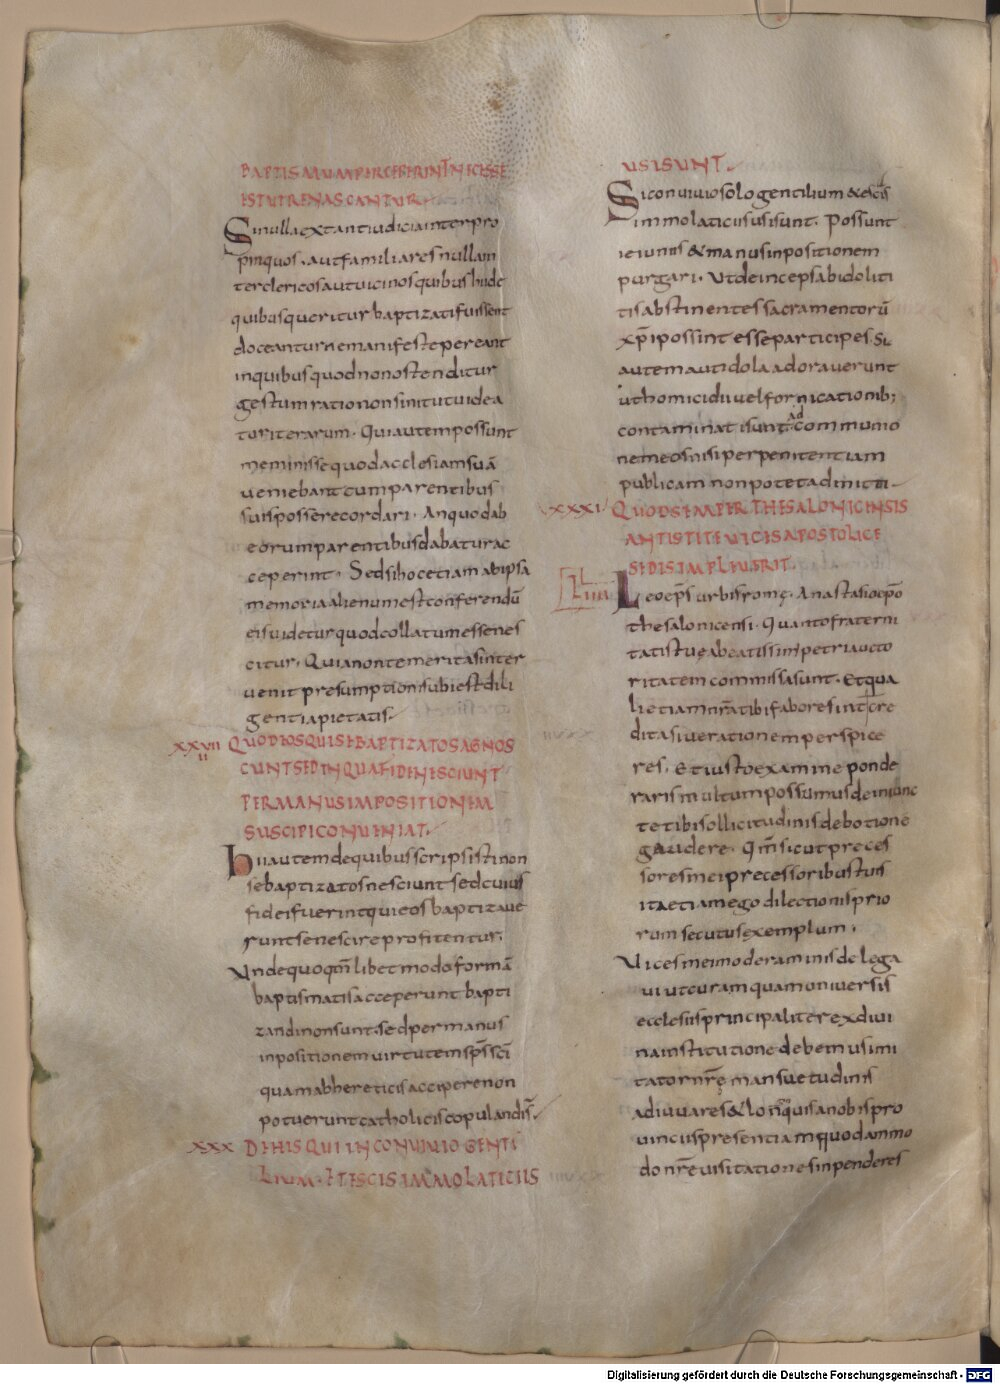 BAPTISMUM PERCEPERINT NECESSE
EST UT RENASCANTUR
Si nulla extant iudicia inter pro
pinquos. aut familiares nulla in
ter clericos aut uicinos quibus hi de
quibus queritur baptizati fuissent
doceantur ne manifeste pereant
in quibus quod non ostenditur
gestum ratio non sinit ut uidea
tur iterarum. Qui autem possunt
meminisse quod ad acclesiam suā
ueniebant cum parentibus
suis possere cordari. An quod ab
eorum parentibus dabatur ac
ceperint. Sed si hoc etiam ab ipsa
memoria alienum est conferendū
eis uidetur quod collatum esse nes
citur. Quia non temeritas inter
uenit presumptionis ubi est dili
gentia pietatis
XXVIIII QUOD EOS QUI SE BAPTIZATOS AGNOS
CUNT SED IN QUA FIDE NESCIUNT
PER MANUS IMPOSITIONEM
SUSCIPI CONUENIAT.
Hii autem de quibus scripsisti non
se baptizatos nesciunt sed cuius
fidei fuerint qui eos baptizaue
runt se nescire profitentur.
Unde quoqm̄ libet modo formā
baptismatis acceperunt bapti
zandi non sunt. sed per manus
inpositionem uirtutem sp̄s sc̄i
quam ab hereticis accipere non
potuerunt catholicis copulandi s̄.
XXX DE HIS QUI IN CONUIUIO GENTI
LIUM. ET ESCIS IMMOLATICIIS
USI SUNT.
Si conuiuio solo gentilium & escis
immolaticiis usi sunt. Possunt
ieiuniis & manus inpositionem
purgari. Ut deinceps ab idoliti
tis abstinentes sacramentorū
xp̄i possint esse participes. Si
autem aut idola adorauerunt
ut homicidii uel fornicationib;
contaminati sunt ad communio
nem eos nisi per penitentiam
publicam non potet admitti
XXXI QUOD SEMPER THESALONICENSIS
ANTISTITE UICIS APOSTOLICE
SEDIS IMPLEUERIT.
LIIII Leo ep̄s urbis romę. Anastasio ep̄o
thesalonicensi. Quanto fraterni
tatis tuę a beatissimi petri aucto
ritatem commissa sunt. Et qua
lie tiam nr̄a tibi fabore sint cre
dita si uera tionem perspice
res. Et iusto examine ponde
raris multum possumus de iniunc
te tibi sollicitudinis debotione
gaudere. Qm̄ sicut preces
sores mei precessoribus tuis
ita et iam ego dilectionis prio
rum secutus exemplum.
Uices mei moderaminis delega
ui ut curam quam uniuersis
ecclesiis principaliter ex diui
na institutione debemus imi
tator nr̄ę mansuetudinis
adiuuares & longinquis a nobis pro
uinciis presentiam quodammo
do nr̄e uisitationes inpenderes
Digitalisierung gefördert durch die Deutsche Forschungsgemeinschaft - DFG